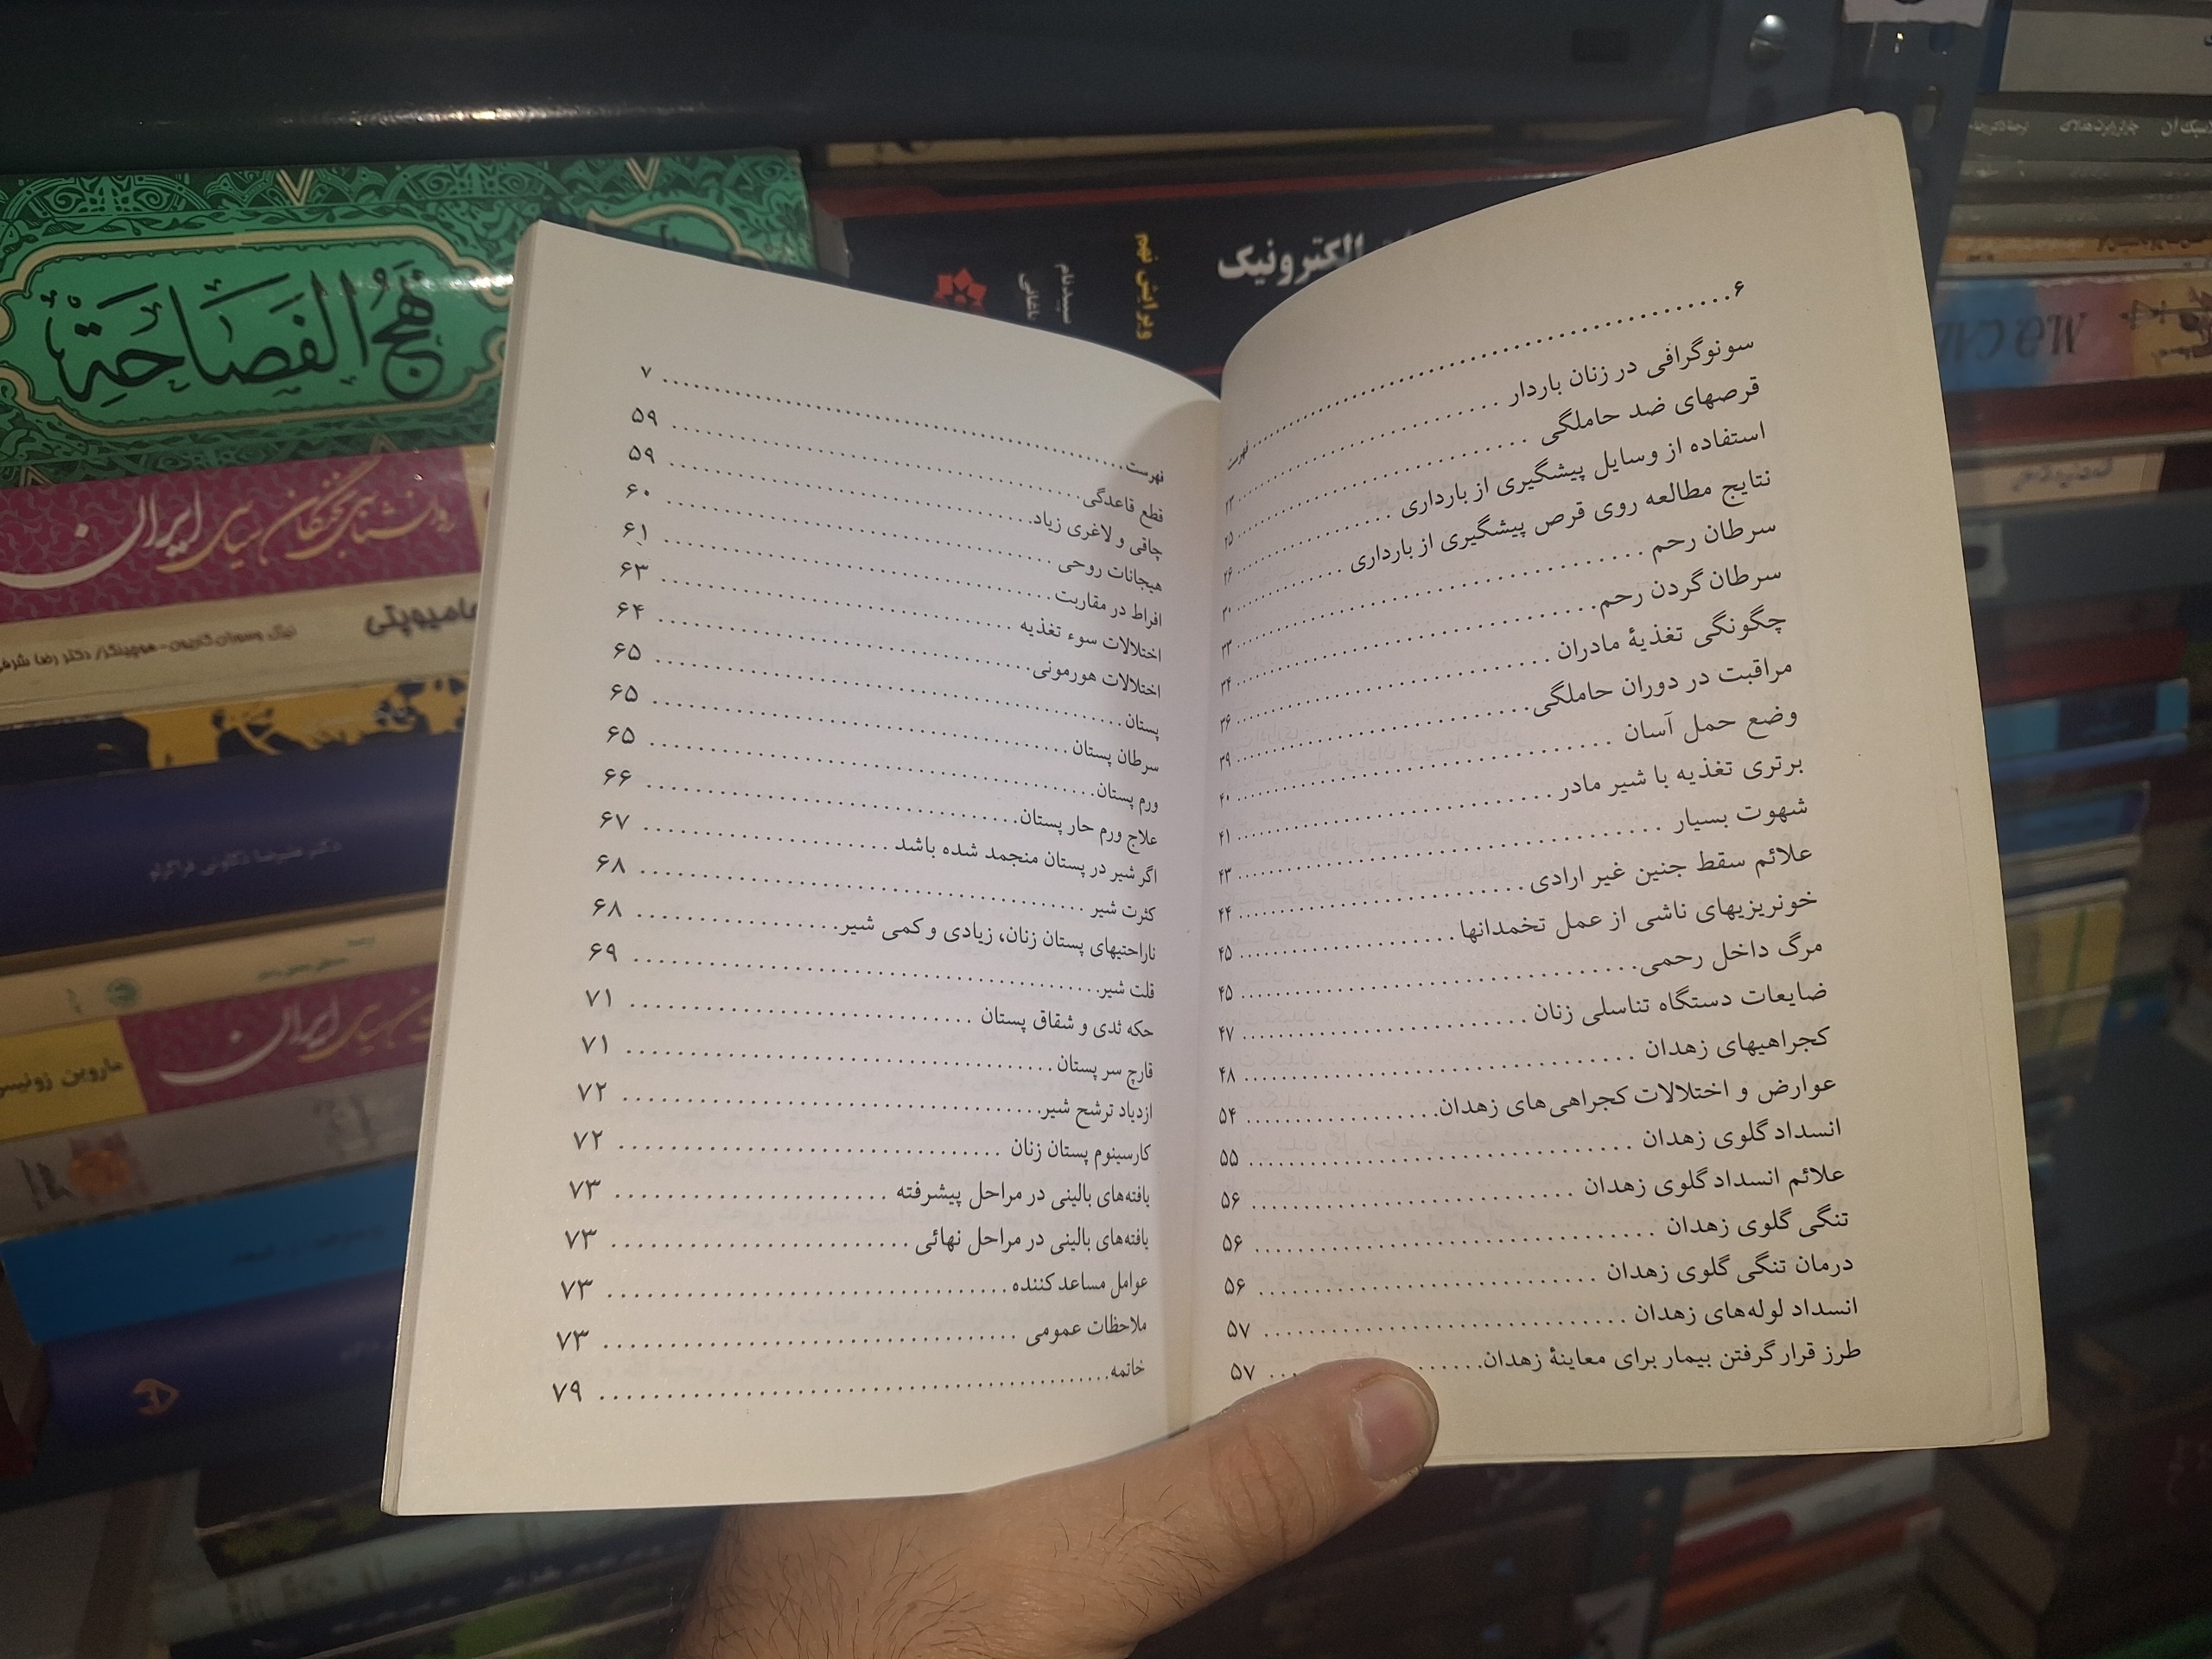 نهج الفَصَاحَةِ
روانشناسی نخبگان سیاسی ایران
دکتر رضا
ماروین زونیس
الکترونیک
ویرایش نهم
سپیدنام
۶
فهرست
سونوگرافی در زنان باردار ۲۳
قرصهای ضد حاملگی ۲۵
استفاده از وسایل پیشگیری از بارداری ۲۶
نتایج مطالعه روی قرص پیشگیری از بارداری ۳۰
سرطان رحم ۳۳
سرطان گردن رحم ۳۴
چگونگی تغذیهٔ مادران ۳۶
مراقبت در دوران حاملگی ۳۹
وضع حمل آسان ۴۰
برتری تغذیه با شیر مادر ۴۱
شهوت بسیار ۴۳
علائم سقط جنین غیر ارادی ۴۴
خونریزیهای ناشی از عمل تخمدانها ۴۵
مرگ داخل رحمی ۴۵
ضایعات دستگاه تناسلی زنان ۴۷
کجراهیهای زهدان ۴۸
عوارض و اختلالات کجراهی‌های زهدان ۵۴
انسداد گلوی زهدان ۵۵
علائم انسداد گلوی زهدان ۵۶
تنگی گلوی زهدان ۵۶
درمان تنگی گلوی زهدان ۵۶
انسداد لوله‌های زهدان ۵۷
طرز قرار گرفتن بیمار برای معاینهٔ زهدان ۵۷
فهرست ۷
قطع قاعدگی ۵۹
چاقی و لاغری زیاد ۵۹
هیجانات روحی ۶۰
افراط در مقاربت ۶۱
اختلالات سوء تغذیه ۶۳
اختلالات هورمونی ۶۴
پستان ۶۵
سرطان پستان ۶۵
ورم پستان ۶۵
علاج ورم حار پستان ۶۶
اگر شیر در پستان منجمد شده باشد ۶۷
کثرت شیر ۶۸
ناراحتیهای پستان زنان، زیادی و کمی شیر ۶۸
قلت شیر ۶۹
حکه ثدی و شقاق پستان ۷۱
قارچ سر پستان ۷۱
ازدیاد ترشح شیر ۷۲
کارسینوم پستان زنان ۷۲
یافته‌های بالینی در مراحل پیشرفته ۷۳
یافته‌های بالینی در مراحل نهائی ۷۳
عوامل مساعد کننده ۷۳
ملاحظات عمومی ۷۳
خاتمه ۷۹